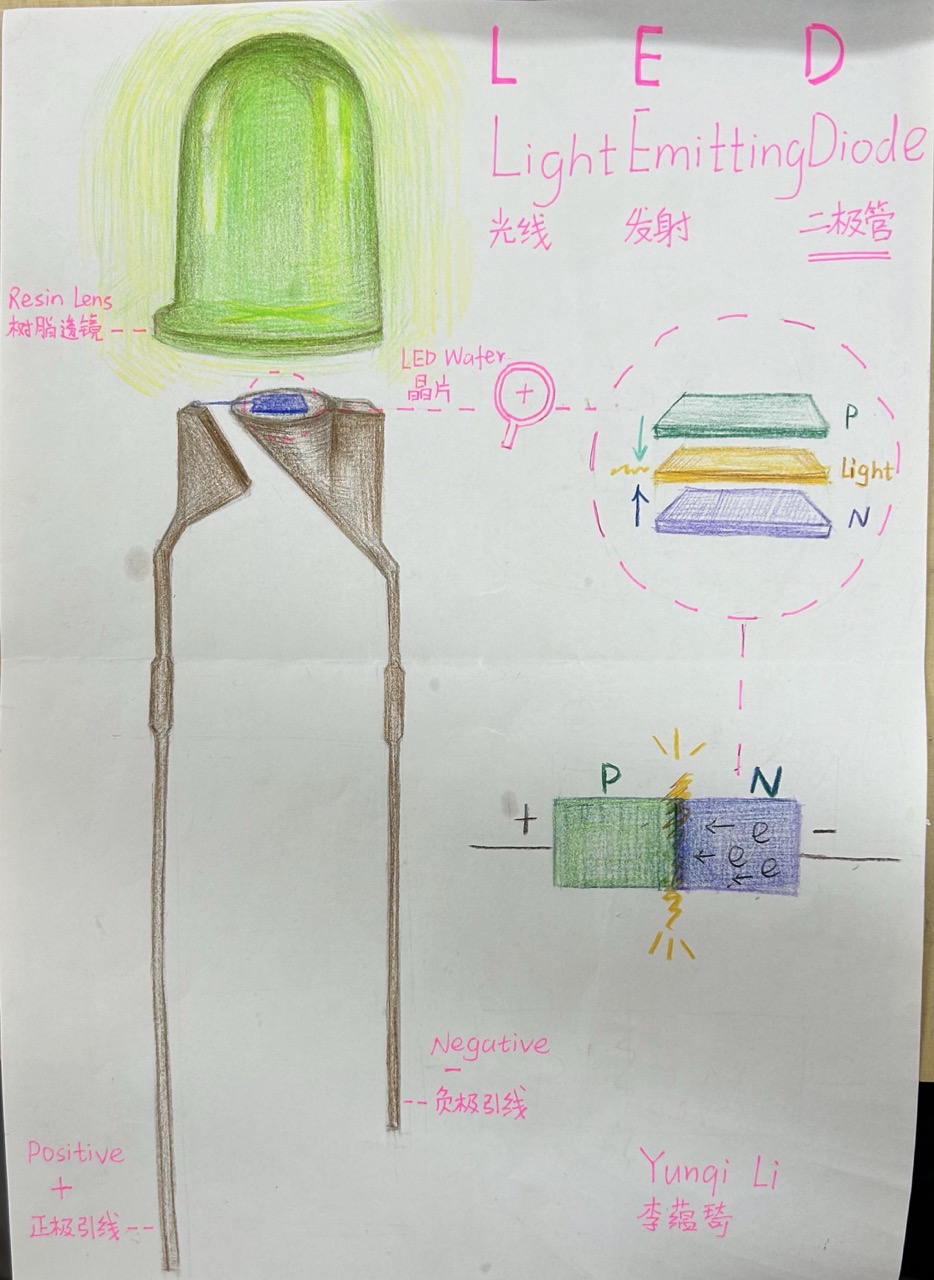 L E D
Light Emitting Diode
光线 发射 二极管
Resin Lens
树脂透镜
LED Wafer
晶片
+
P
Light
N
P N
+ -
e
e
e
Negative
-
负极引线
Positive
+
正极引线
Yunqi Li
李蕴琦